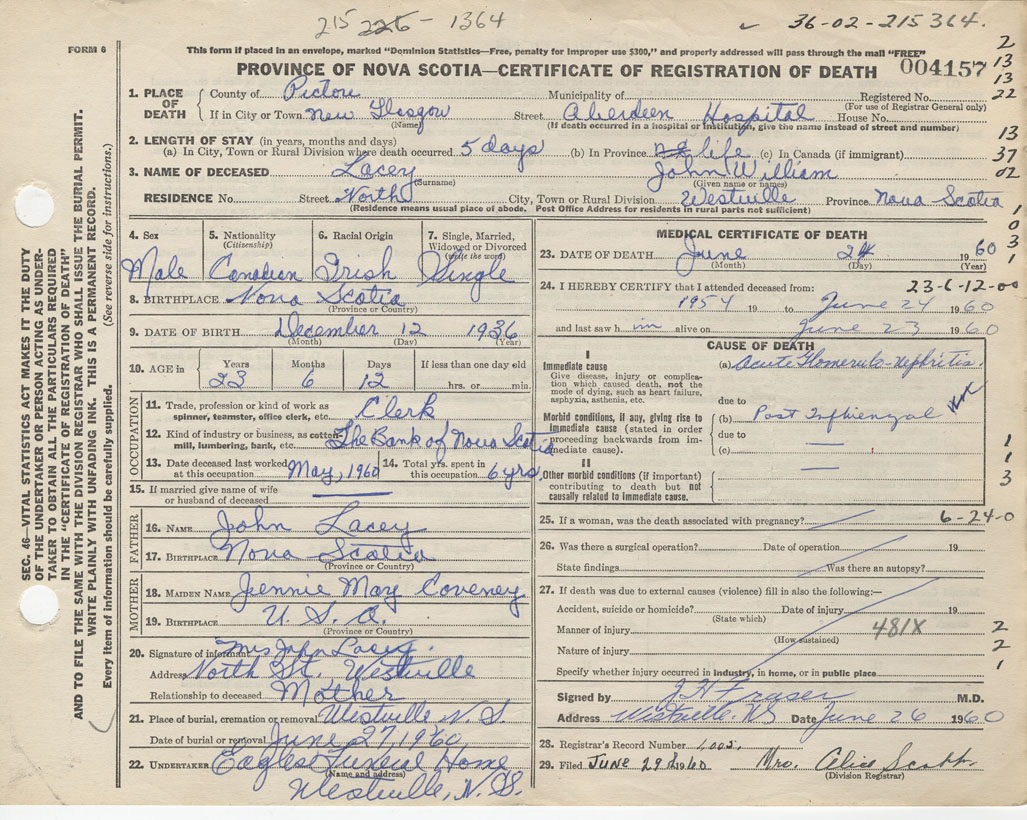 215 226 - 1364
✓ 36-02-215364.
FORM 6
This form if placed in an envelope, marked "Dominion Statistics—Free, penalty for improper use $300," and properly addressed will pass through the mail "FREE"
PROVINCE OF NOVA SCOTIA—CERTIFICATE OF REGISTRATION OF DEATH 004157
2
13
13
22
13
37
02
1
0
3
1
SEC. 46—VITAL STATISTICS ACT MAKES IT THE DUTY
OF THE UNDERTAKER OR PERSON ACTING AS UNDER-
TAKER TO OBTAIN ALL THE PARTICULARS REQUIRED
IN THE "CERTIFICATE OF REGISTRATION OF DEATH"
AND TO FILE THE SAME WITH THE DIVISION REGISTRAR WHO SHALL ISSUE THE BURIAL PERMIT.
WRITE PLAINLY WITH UNFADING INK. THIS IS A PERMANENT RECORD.
Every item of information should be carefully supplied. (See reverse side for instructions.)
1. PLACE OF DEATH
County of Pictou Municipality of Registered No.
(For use of Registrar General only)
If in City or Town New Glasgow Street Aberdeen Hospital House No.
(Name) (If death occurred in a hospital or institution, give the name instead of street and number)
2. LENGTH OF STAY (in years, months and days)
(a) In City, Town or Rural Division where death occurred 5 days (b) In Province life (c) In Canada (if immigrant)
3. NAME OF DECEASED Lacey John William
(Surname) (Given name or names)
RESIDENCE No. Street North City, Town or Rural Division Westville Province Nova Scotia
(Residence means usual place of abode. Post Office Address for residents in rural parts not sufficient)
4. Sex 5. Nationality (Citizenship) 6. Racial Origin 7. Single, Married, Widowed or Divorced (write the word)
Male Canadian Irish Single
8. BIRTHPLACE Nova Scotia
(Province or Country)
9. DATE OF BIRTH December 12 1936
(Month) (Day) (Year)
10. AGE in Years Months Days If less than one day old
23 6 12 hrs. or min.
OCCUPATION
11. Trade, profession or kind of work as spinner, teamster, office clerk, etc. Clerk
12. Kind of industry or business, as cotton-mill, lumbering, bank, etc. The Bank of Nova Scotia
13. Date deceased last worked at this occupation May, 1960 14. Total yrs. spent in this occupation 6 yrs.
15. If married give name of wife or husband of deceased
FATHER
16. NAME John Lacey
17. BIRTHPLACE Nova Scotia
(Province or Country)
MOTHER
18. MAIDEN NAME Jennie May Coveney
19. BIRTHPLACE U. S. A.
(Province or Country)
20. Signature of informant Mrs John Lacey.
Address North St. Westville
Relationship to deceased Mother
21. Place of burial, cremation or removal Westville N. S
Date of burial or removal June 27, 1960
22. UNDERTAKER Eagles Funeral Home
(Name and address)
Westville, N. S.
MEDICAL CERTIFICATE OF DEATH
23. DATE OF DEATH June 24 1960
(Month) (Day) (Year)
24. I HEREBY CERTIFY that I attended deceased from: 23-6-12-00
1954 19 to June 24 1960
and last saw him alive on June 23 1960
CAUSE OF DEATH
I
Immediate cause
Give disease, injury or complication which caused death, not the mode of dying, such as heart failure, asphyxia, asthenia, etc.
(a) Acute Glomerulo-Nephritis.
due to
Morbid conditions, if any, giving rise to immediate cause (stated in order proceeding backwards from immediate cause).
(b) Post Influenzal
due to —
(c)
II
Other morbid conditions (if important) contributing to death but not causally related to immediate cause.
—
1
1
3
25. If a woman, was the death associated with pregnancy? 6-24-0
26. Was there a surgical operation? Date of operation 19
State findings Was there an autopsy?
27. If death was due to external causes (violence) fill in also the following:—
Accident, suicide or homicide? Date of injury 19
(State which)
Manner of injury 481X 2
(How sustained)
Nature of injury 2
Specify whether injury occurred in industry, in home, or in public place 1
Signed by J H Fraser M.D.
Address Westville. NS Date June 26 1960
28. Registrar's Record Number 1,005.
29. Filed JUNE 29th 1960 Mrs. Alice Scott
(Division Registrar)